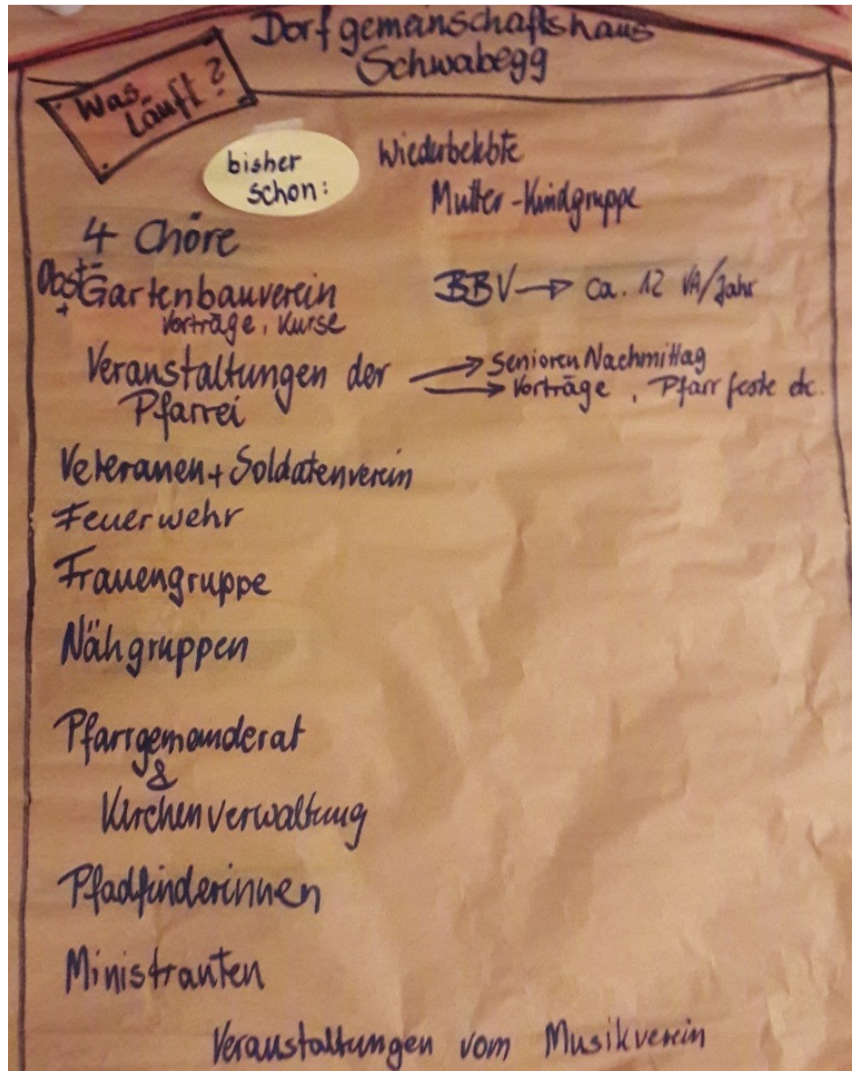 Dorfgemeinschaftshaus
Schwabegg
Was
läuft?
bisher
schon:
Wiederbelebte
Mutter-Kindgruppe
4 Chöre
Obst-
+ Gartenbauverein
Vorträge, Kurse
BBV → ca. 12 VA/Jahr
Veranstaltungen der
Pfarrei
→ Senioren Nachmittag
→ Vorträge, Pfarrfeste etc.
Veteranen + Soldatenverein
Feuerwehr
Frauengruppe
Nähgruppen
Pfarrgemeinderat
&
Kirchenverwaltung
Pfadfinderinnen
Ministranten
Veranstaltungen vom Musikverein